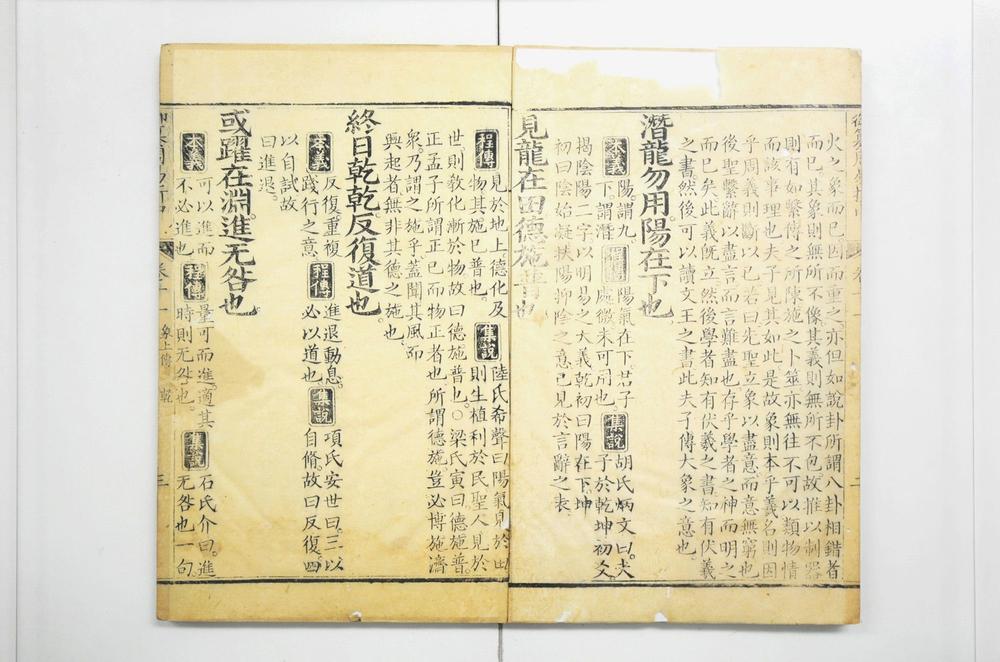 火之象而已因而重之亦但如說卦所謂八卦相錯者
而已其象則無所不像其義則無所不包故推以制器
則有如繫傳之所陳施之卜筮亦無往不可以類物情
而該事理也夫子見其如此是故象則本乎羲名則因
乎周義則斷以已若曰先聖立象以盡意而意無窮也
後聖繫辭以盡言而言難盡也存乎學者之神而明之
而已矣此義旣立然後學者知有伏羲之書知有伏羲
之書然後可以讀文王之書此夫子傳大象之意也
潛龍勿用陽在下也
本義 陽謂九下謂潛 程傳 陽氣在下君子處微未可用也 集說 胡氏炳文曰夫子於乾坤初爻
揭陰陽二字以明易之大義乾初曰陽在下坤
初曰陰始凝扶陽抑陰之意已見於言辭之表
見龍在田德施普也
程傳 見於地上德化及物其施已普也 集說 陸氏希聲曰陽氣見於田則生植利於民聖人見於
世則教化漸於物故曰德施普也○梁氏寅曰德施普
正孟子所謂正已而物正者也所謂德施豈必博施濟
衆乃謂之施乎蓋聞其風而
興起者無非其德之施也
終日乾乾反復道也
本義 反復重複踐行之意 程傳 進退動息必以道也 集說 項氏安世曰三以自脩故曰反復四
以自試故
曰進退
或躍在淵進无咎也
本義 可以進而不必進也 程傳 量可而進適其時則无咎也 集說 石氏介曰進无咎也一句
象上傳 乾 三